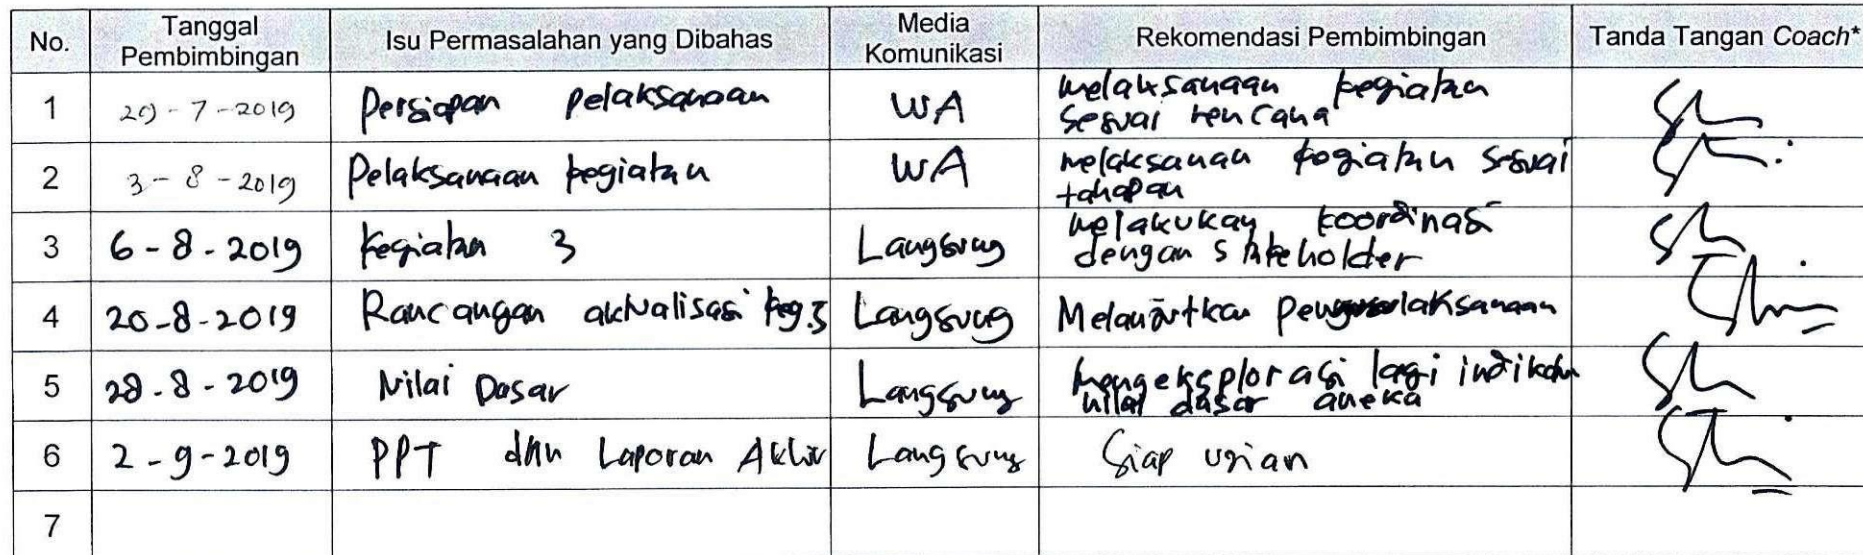 No. Tanggal Pembimbingan Isu Permasalahan yang Dibahas Media Komunikasi Rekomendasi Pembimbingan Tanda Tangan Coach*
1 29-7-2019 Persiapan pelaksanaan WA melaksanaan kegiatan
sesuai rencana
2 3-8-2019 Pelaksanaan kegiatan WA melaksanaan kegiatan sesuai
tahapan
3 6-8-2019 kegiatan 3 Langsung melakukan koordinasi
dengan stakeholder
4 20-8-2019 Rancangan aktualisasi keg.3 Langsung Melanjutkan pelaksanaan
5 28-8-2019 Nilai Dasar Langsung mengeksplorasi lagi indikator
nilai dasar aneka
6 2-9-2019 PPT dan Laporan Akhir Langsung Siap ujian
7